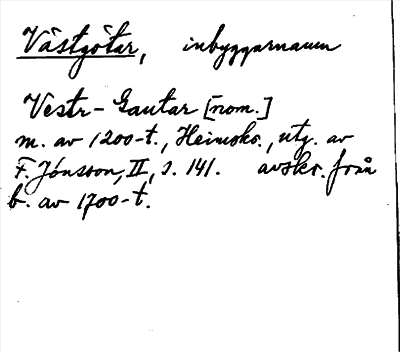 Västgötar, inbyggarnamn
Vestr-Gautar [nom.]
m. av 1200-t., Heimskr., utg. av
F. Jónsson, II, s. 141. avskr. från
b. av 1700-t.